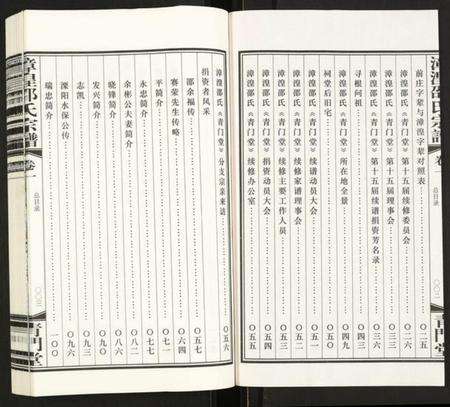 漳湟邵氏宗譜 卷一 总目录
青門堂
前庄字辈与漳湟字辈对照表……〇二五
漳湟邵氏《青门堂》第十五届续修委员会……〇二六
漳湟邵氏《青门堂》第十五届续修理事会……
漳湟邵氏《青门堂》第十五届续谱捐资芳名录……〇四一
寻根问祖……〇四三
漳湟邵氏《青门堂》所在地全景……〇四九
祠堂后旧宅……〇五〇
漳湟邵氏《青门堂》续谱动员大会……〇五一
漳湟邵氏《青门堂》续修家谱理事会……〇五二
漳湟邵氏《青门堂》续修主要工作人员……〇五三
漳湟邵氏《青门堂》捐资动员大会……〇五四
漳湟邵氏《青门堂》续修办公室……〇五五
漳湟邵氏《青门堂》分支宗亲来谱……〇五六
捐资者风采
邵余福传……〇五七
赛荣先生传略……〇六四
平简介……〇七一
永忠简介……〇七七
余彬公夫妻简介……〇八二
晓锋简介……〇八六
发兴简介……
志凯……〇九三
溧阳水保公传……〇九六
瑞忠简介……一〇〇
漳湟邵氏宗譜 卷一 总目录
青門堂